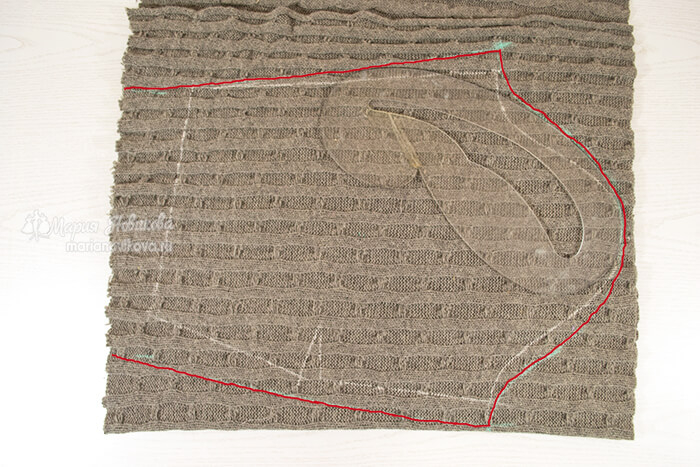 Мария Новикова
marianovikova.ru